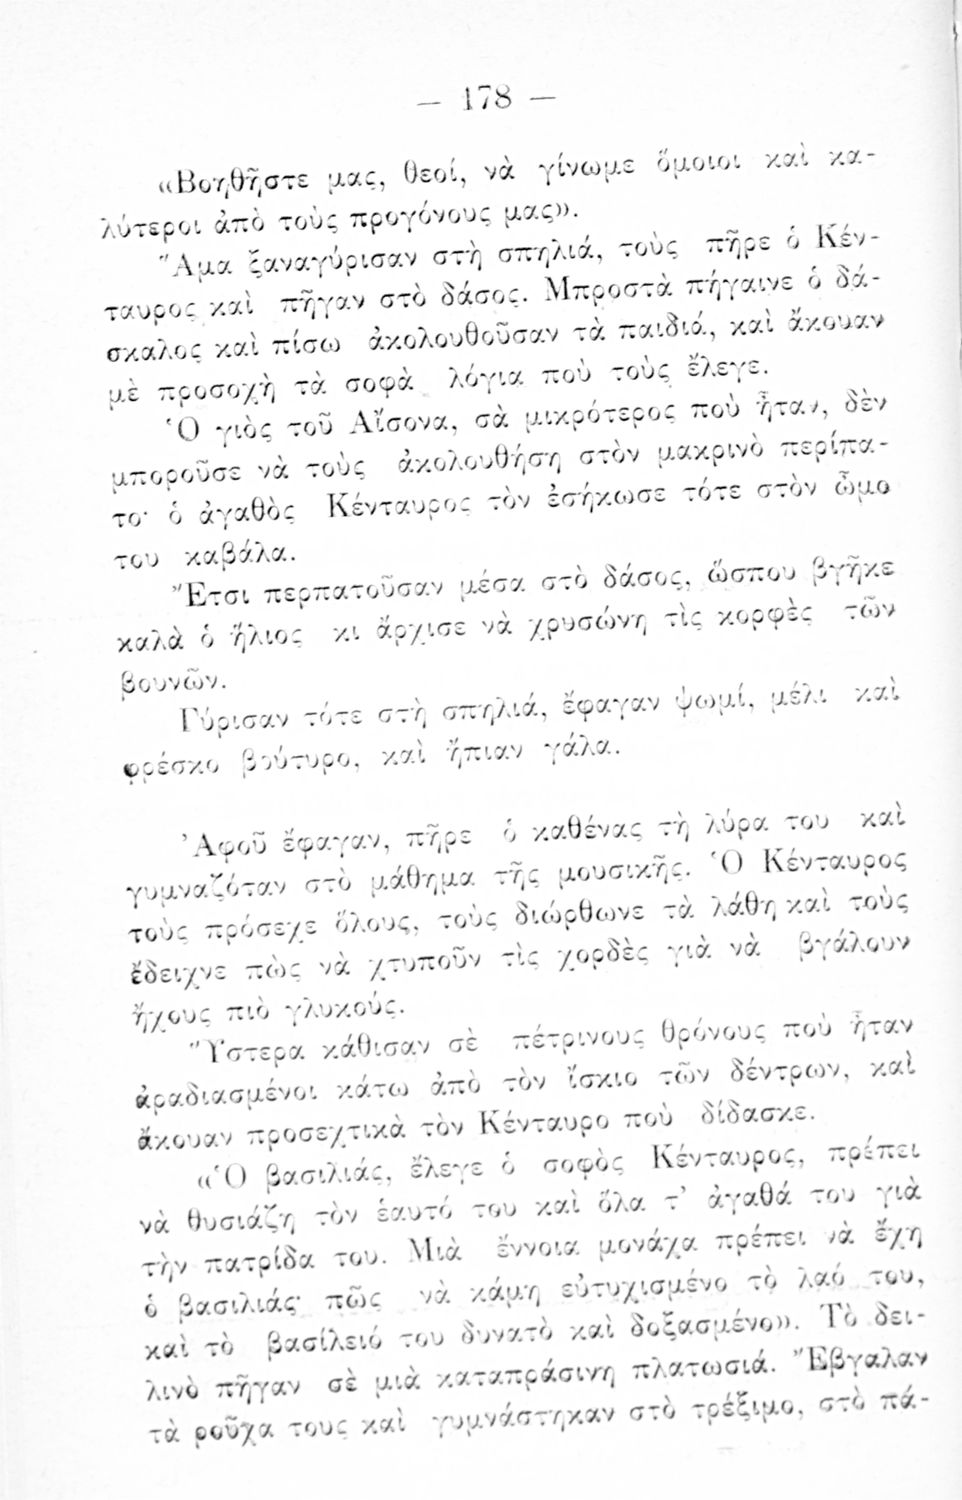 — 178 —
«Βοηθῆστε μας, θεοί, νὰ γίνωμε ὅμοιοι καὶ κα-
λύτεροι ἀπὸ τοὺς προγόνους μας».
Ἅμα ξαναγύρισαν στὴ σπηλιά, τοὺς πῆρε ὁ Κέν-
ταυρος καὶ πῆγαν στὸ δάσος. Μπροστὰ πήγαινε ὁ δά-
σκαλος καὶ πίσω ἀκολουθοῦσαν τὰ παιδιά, καὶ ἄκουαν
μὲ προσοχὴ τὰ σοφὰ λόγια ποὺ τοὺς ἔλεγε.
Ὁ γιὸς τοῦ Αἴσονα, σὰ μικρότερος ποὺ ἦταν, δὲν
μποροῦσε νὰ τοὺς ἀκολουθήση στὸν μακρινὸ περίπα-
το· ὁ ἀγαθὸς Κένταυρος τὸν ἐσήκωσε τότε στὸν ὦμο
του καβάλα.
Ἔτσι περπατοῦσαν μέσα στὸ δάσος, ὥσπου βγῆκε
καλὰ ὁ ἥλιος κι ἄρχισε νὰ χρυσώνη τὶς κορφὲς τῶν
βουνῶν.
Γύρισαν τότε στὴ σπηλιά, ἔφαγαν ψωμί, μέλι καὶ
φρέσκο βούτυρο, καὶ ἤπιαν γάλα.
Ἀφοῦ ἔφαγαν, πῆρε ὁ καθένας τὴ λύρα του καὶ
γυμναζόταν στὸ μάθημα τῆς μουσικῆς. Ὁ Κένταυρος
τοὺς πρόσεχε ὅλους, τοὺς διώρθωνε τὰ λάθη καὶ τοὺς
ἔδειχνε πὼς νὰ χτυποῦν τὶς χορδὲς γιὰ νὰ βγάλουν
ἤχους πιὸ γλυκούς.
Ὕστερα κάθισαν σὲ πέτρινους θρόνους ποὺ ἦταν
ἀραδιασμένοι κάτω ἀπὸ τὸν ἴσκιο τῶν δέντρων, καὶ
ἄκουαν προσεχτικὰ τὸν Κένταυρο ποὺ δίδασκε.
«Ὁ βασιλιάς, ἔλεγε ὁ σοφὸς Κένταυρος, πρέπει
νὰ θυσιάζη τὸν ἑαυτό του καὶ ὅλα τ' ἀγαθά του γιὰ
τὴν πατρίδα του. Μιὰ ἔννοια μονάχα πρέπει νὰ ἔχη
ὁ βασιλιάς· πῶς νὰ κάμη εὐτυχισμένο τὸ λαό του,
καὶ τὸ βασίλειό του δυνατὸ καὶ δοξασμένο». Τὸ δει-
λινὸ πῆγαν σὲ μιὰ καταπράσινη πλατωσιά. Ἔβγαλαν
τὰ ροῦχα τους καὶ γυμνάστηκαν στὸ τρέξιμο, στὸ πά-